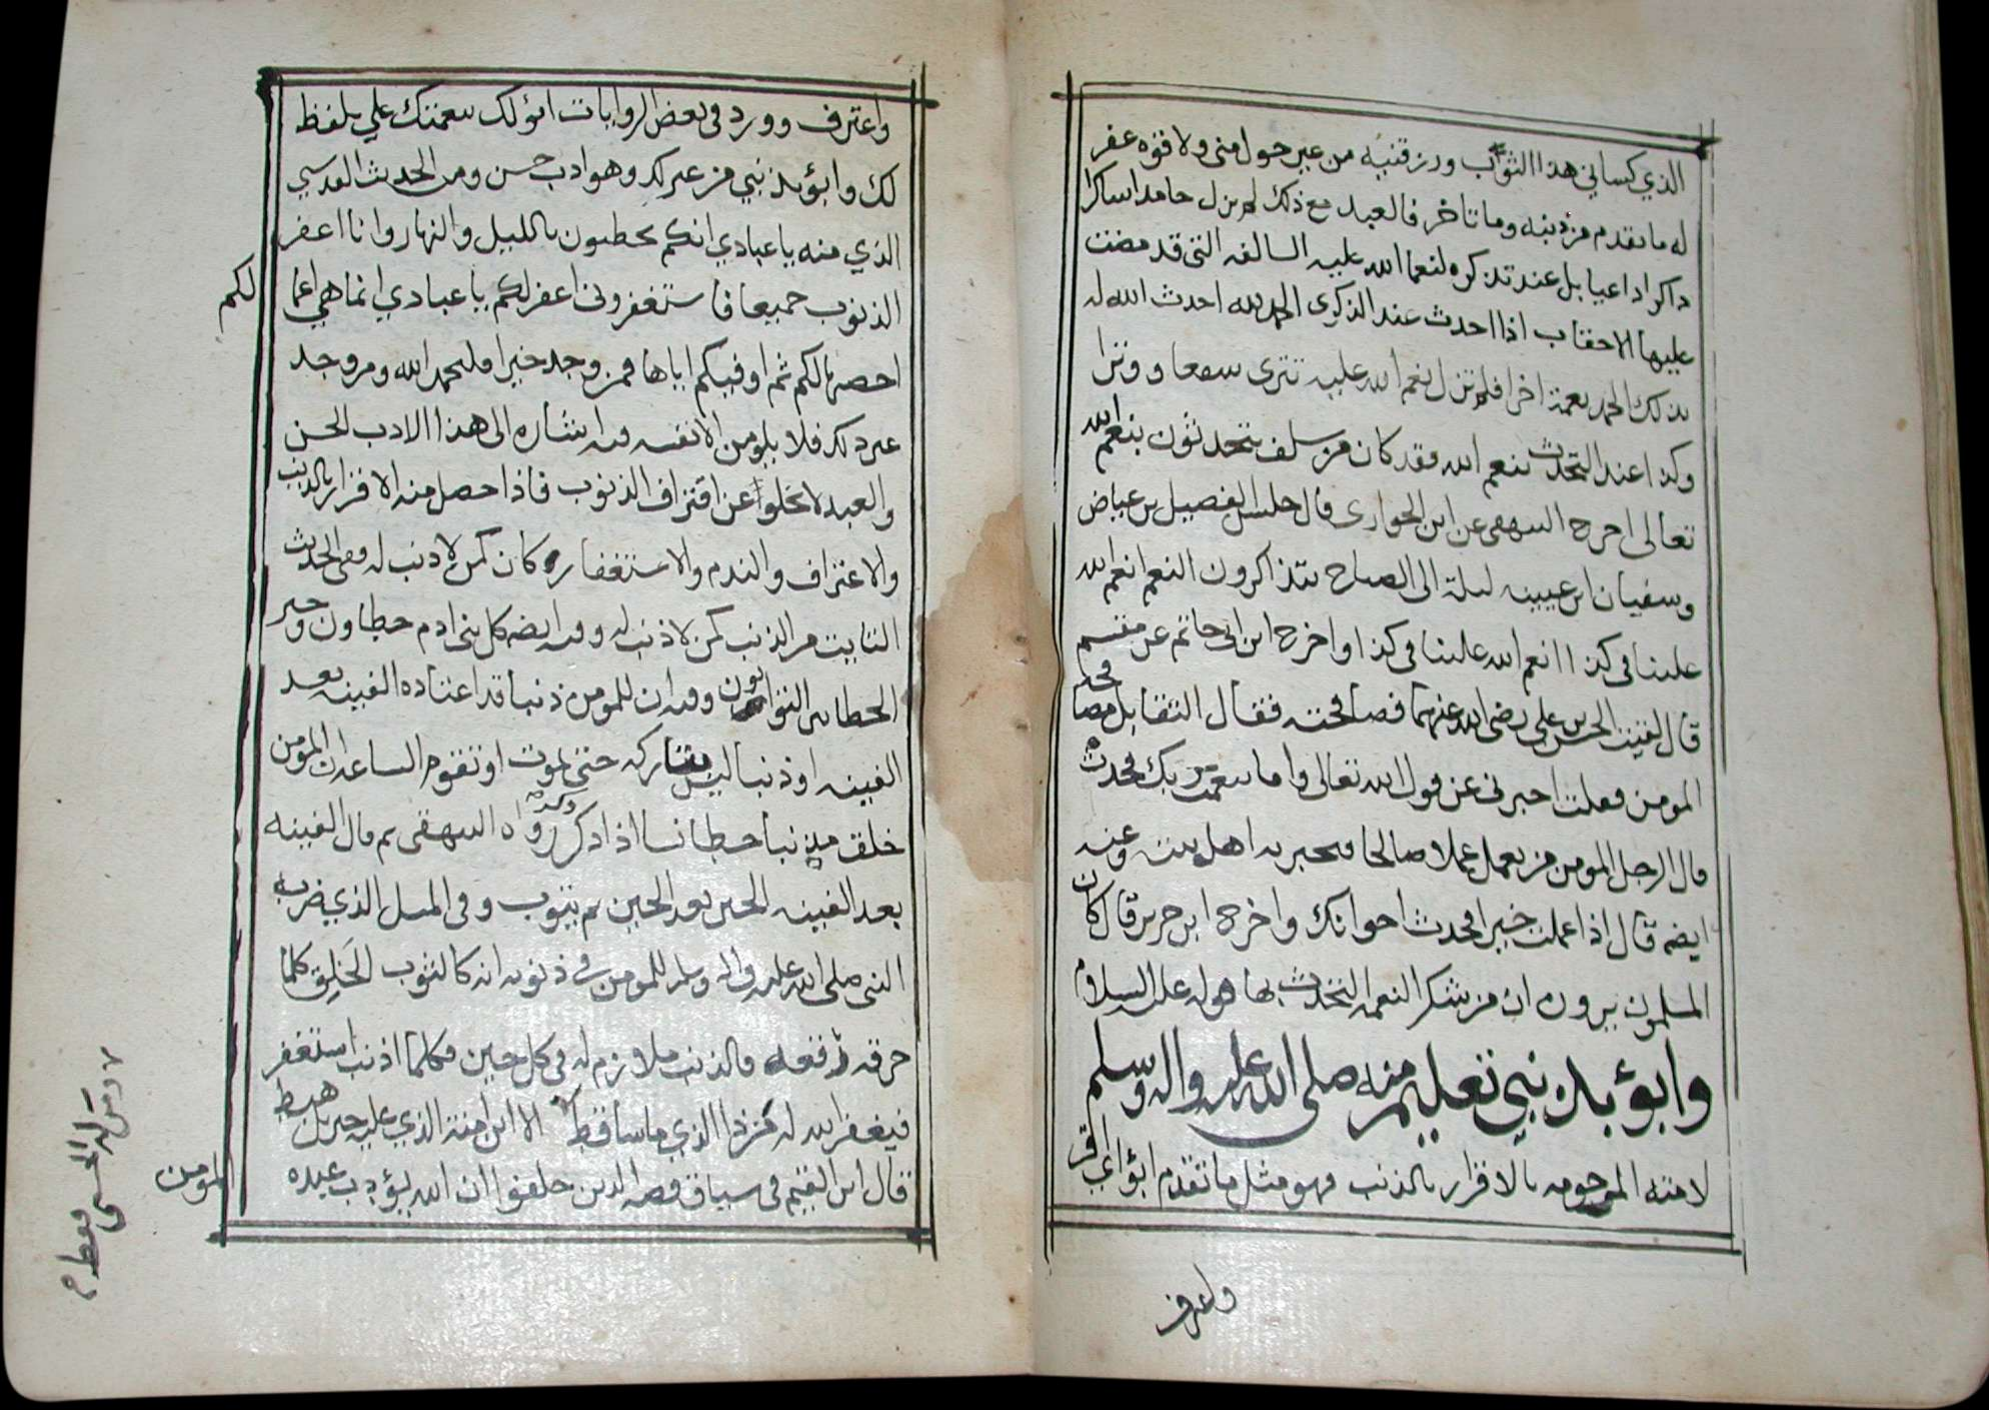 الذي كساني هذا الثوب ورزقنيه من غير حول مني ولا قوه غفر
له ما تقدم من ذنبه وما تاخر فالعبد مع ذلك لم يزل حامدا شاكرا
ذاكرا داعيا بل عند تذكره لنعما الله عليه السالفه التي قد مضت
عليها الاحقاب اذا احدث عند الذكرى الحمد لله احدث الله له
بذلك الحمد نعمة اخرا فلم تزل نعم الله عليه تترى شفعا ووترا
وكذا عند التحدث بنعم الله فقد كان من سلف يتحدثون بنعم الله
تعالى اخرج البيهقي عن ابن الحواري قال جلس الفضيل بن عياض
وسفيان بن عيينه ليلة الى الصباح يتذاكرون النعم انعم الله
علينا في كذا انعم الله علينا في كذا واخرج ابن ابي حاتم عن مقسم
قال لقيت الحسن بن علي رضي الله عنهما فصافحته فقال التقابل مصافحة
المومن فقلت اخبرني عن قول الله تعالى واما بنعمة ربك فحدث
قال الرجل المومن يعمل عملا صالحا فيخبر به اهل بيته وعنه
ايضه قال اذا عملت خيرا فحدث اخوانك واخرج ابن جرير قال كان
المسلمون يرون ان من شكر النعمه التحدث بها قوله عليه السلام
وابؤ بذنبي تعليم منه صلى الله عليه واله وسلم
لامته المرحومه بالاقرار بالذنب فهو مثل ما تقدم ابؤ اي اقر
واعترف
واعترف وورد في بعض الروايات ابؤ لك بنعمتك علي بلفظ
لك وابؤ بذنبي من غير لك وهو ادب حسن ومن الحديث القدسي
الذي منه يا عبادي انكم تخطئون بالليل والنهار وانا اغفر
الذنوب جميعا فاستغفروني اغفر لكم يا عبادي انما هي اعما
لكم
احصيها لكم ثم اوفيكم اياها فمن وجد خيرا فليحمد الله ومن وجد
غير ذلك فلا يلومن الا نفسه فيه اشاره الى هذا الادب الحسن
والعبد لا يخلوا عن اقتراف الذنوب فاذا حصل منه الاقرار بالذنب
والاعتراف والندم والاستغفار كان كمن لا ذنب له وفي الحديث
التايب من الذنب كمن لا ذنب له وفيه ايضه كل بني ادم خطاون وخير
الخطائين التوابون وفيه ان للمومن ذنبا قد اعتاده الفينه بعد
الفينه او ذنبا ليس بتاركه حتى يموت او تقوم الساعه ان المومن
خلق مذنبا خطا نسا اذا ذكر ذكر رواه البيهقي ثم قال الفينه
بعد الفينه الحين بعد الحين ثم يتوب وفي المثل الذي ضربه
النبي صلى الله عليه واله وسلم للمومن في ذنوبه انه كالثوب الخلق كلما
خرقه رقعه فالذنب ملازم له في كل حين فكلما اذنب استغفر
فيغفر الله له فمن ذا الذي ما ساء قط الا ابن امنة الذي عليه جبريل هبط
قال ابن القيم في سياق قصه الذين خلفوا ان الله يؤدب عبده
المومن
ومن له الحسنى فقط